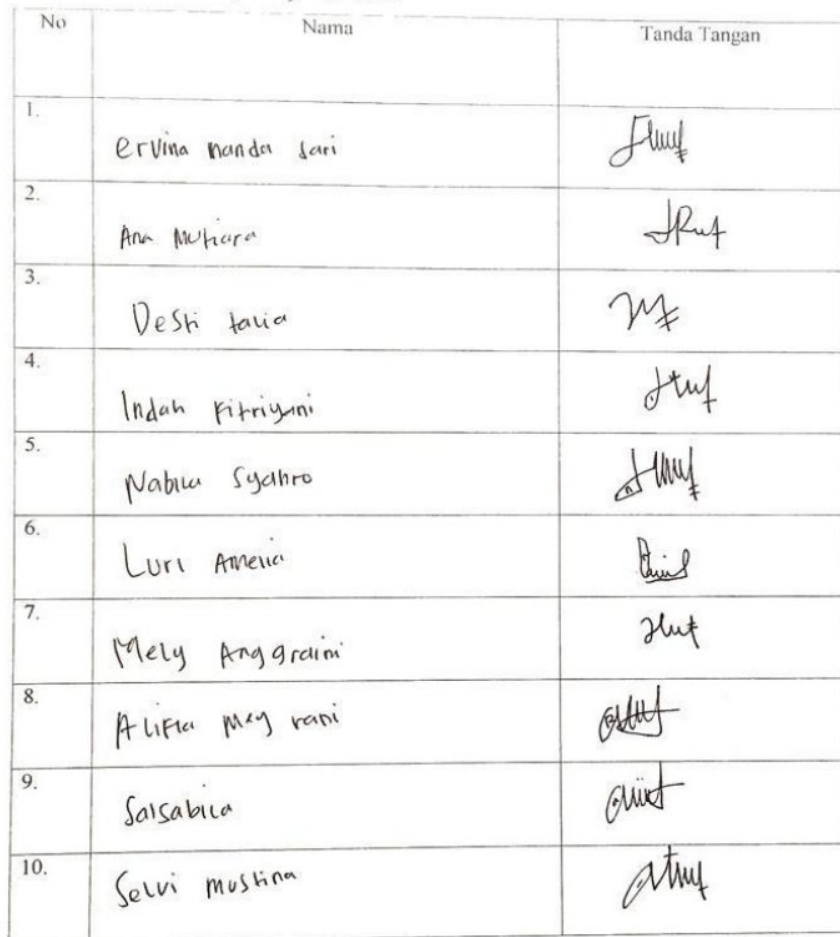 No Nama Tanda Tangan
1. Ervina nanda sari
2. Ana Mutiara
3. Desti talia
4. Indah Fitriyani
5. Nabila Syahro
6. Luri Amelia
7. Mely Anggraini
8. Alifia Mey rani
9. Salsabila
10. Selvi mustina